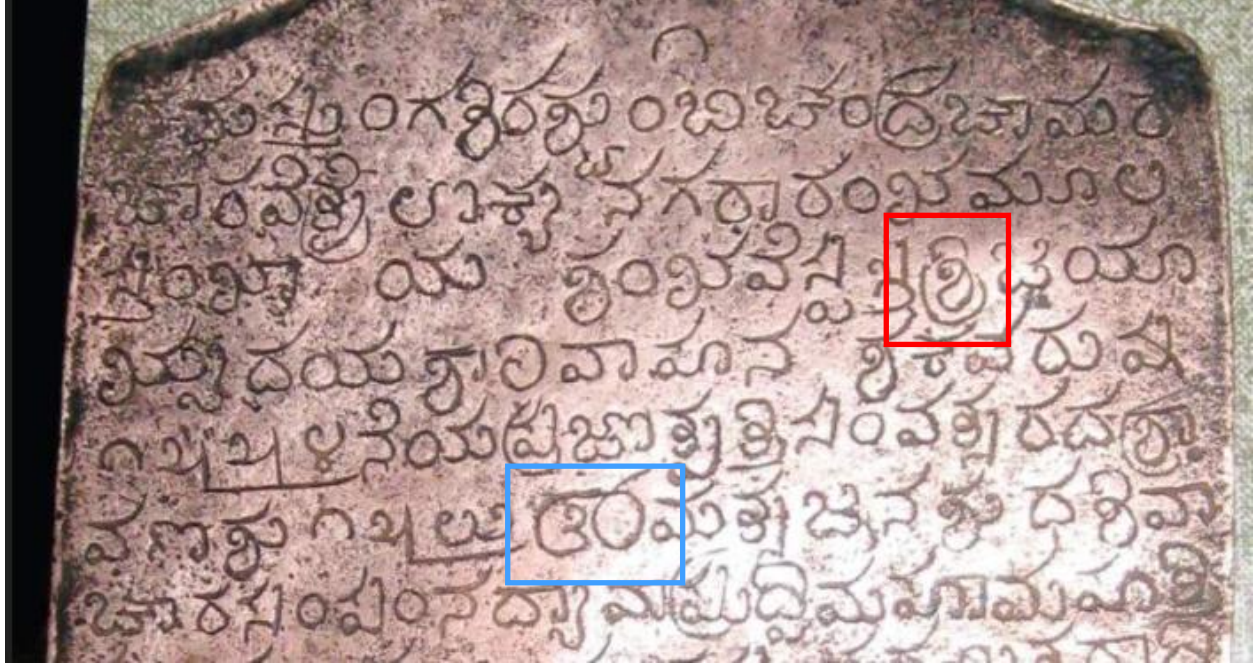 ೧
ಸ್ತುಂಗಶಿರಶ್ಚುಂಬಿಚಂದ್ರಚಾಮರ
ಚಾರವೆ ತ್ರೈಲೋಕ್ಯ ನಗರಾರಂಭಮೂಲ
ಸ್ತಂಭಾಯ ಶಂಭವೆ ಸ್ವಸ್ತಿಶ್ರೀಜಯಾ
ಭ್ಯುದಯಶಾಲಿವಾಹನ ಶಕವರುಷ
೧೫೫೪ನೆಯ ಪ್ರಜೋತ್ಪತ್ತಿಸಂವತ್ಸರದಶ್ರಾ
ವಣಶು ೧೫ಲು ಮತ್ಸಜ್ಜನಶುದಶಿವಾ
ಚಾರಸಂಪಂನ